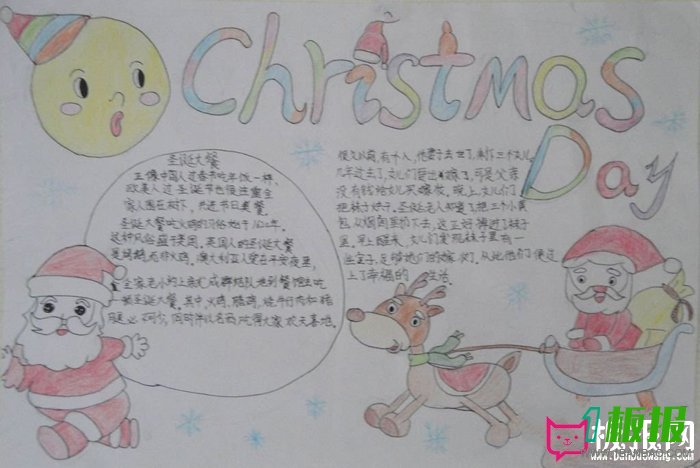 Christmas
Day
圣诞大餐
正像中国人过春节吃年饭一样、
欧美人过圣诞节也很注重全
家人围在树下,共进节日美餐
圣诞大餐吃火鸡的习俗始于1620年。
这种风俗盛于美国。英国人的圣诞大餐
是烤鹅,而非火鸡。澳大利亚人爱在平安夜里,
全家老小约上亲友成群结队地到餐馆去吃
一顿圣诞大餐。其中,火鸡、腊鸡、烧牛仔肉和猪
腿必不可少,同时伴以名酒,吃得大家欢天喜地。
很久以前,有个人,他妻子去世了,剩下三个女儿
几年过去了,女儿们要出嫁了,可是父亲
没有钱给女儿买嫁妆,晚上,女儿们
把袜子
圣诞老人知道了,把三个小黄
包从烟囱里扔了去,这正好掉进了袜子
里,早上醒来,女儿们发现袜子里有一
些金子,足够她们的嫁妆了。从此他们便过
上了幸福的生活。
1板报网
板报网
www.banbaowang.com